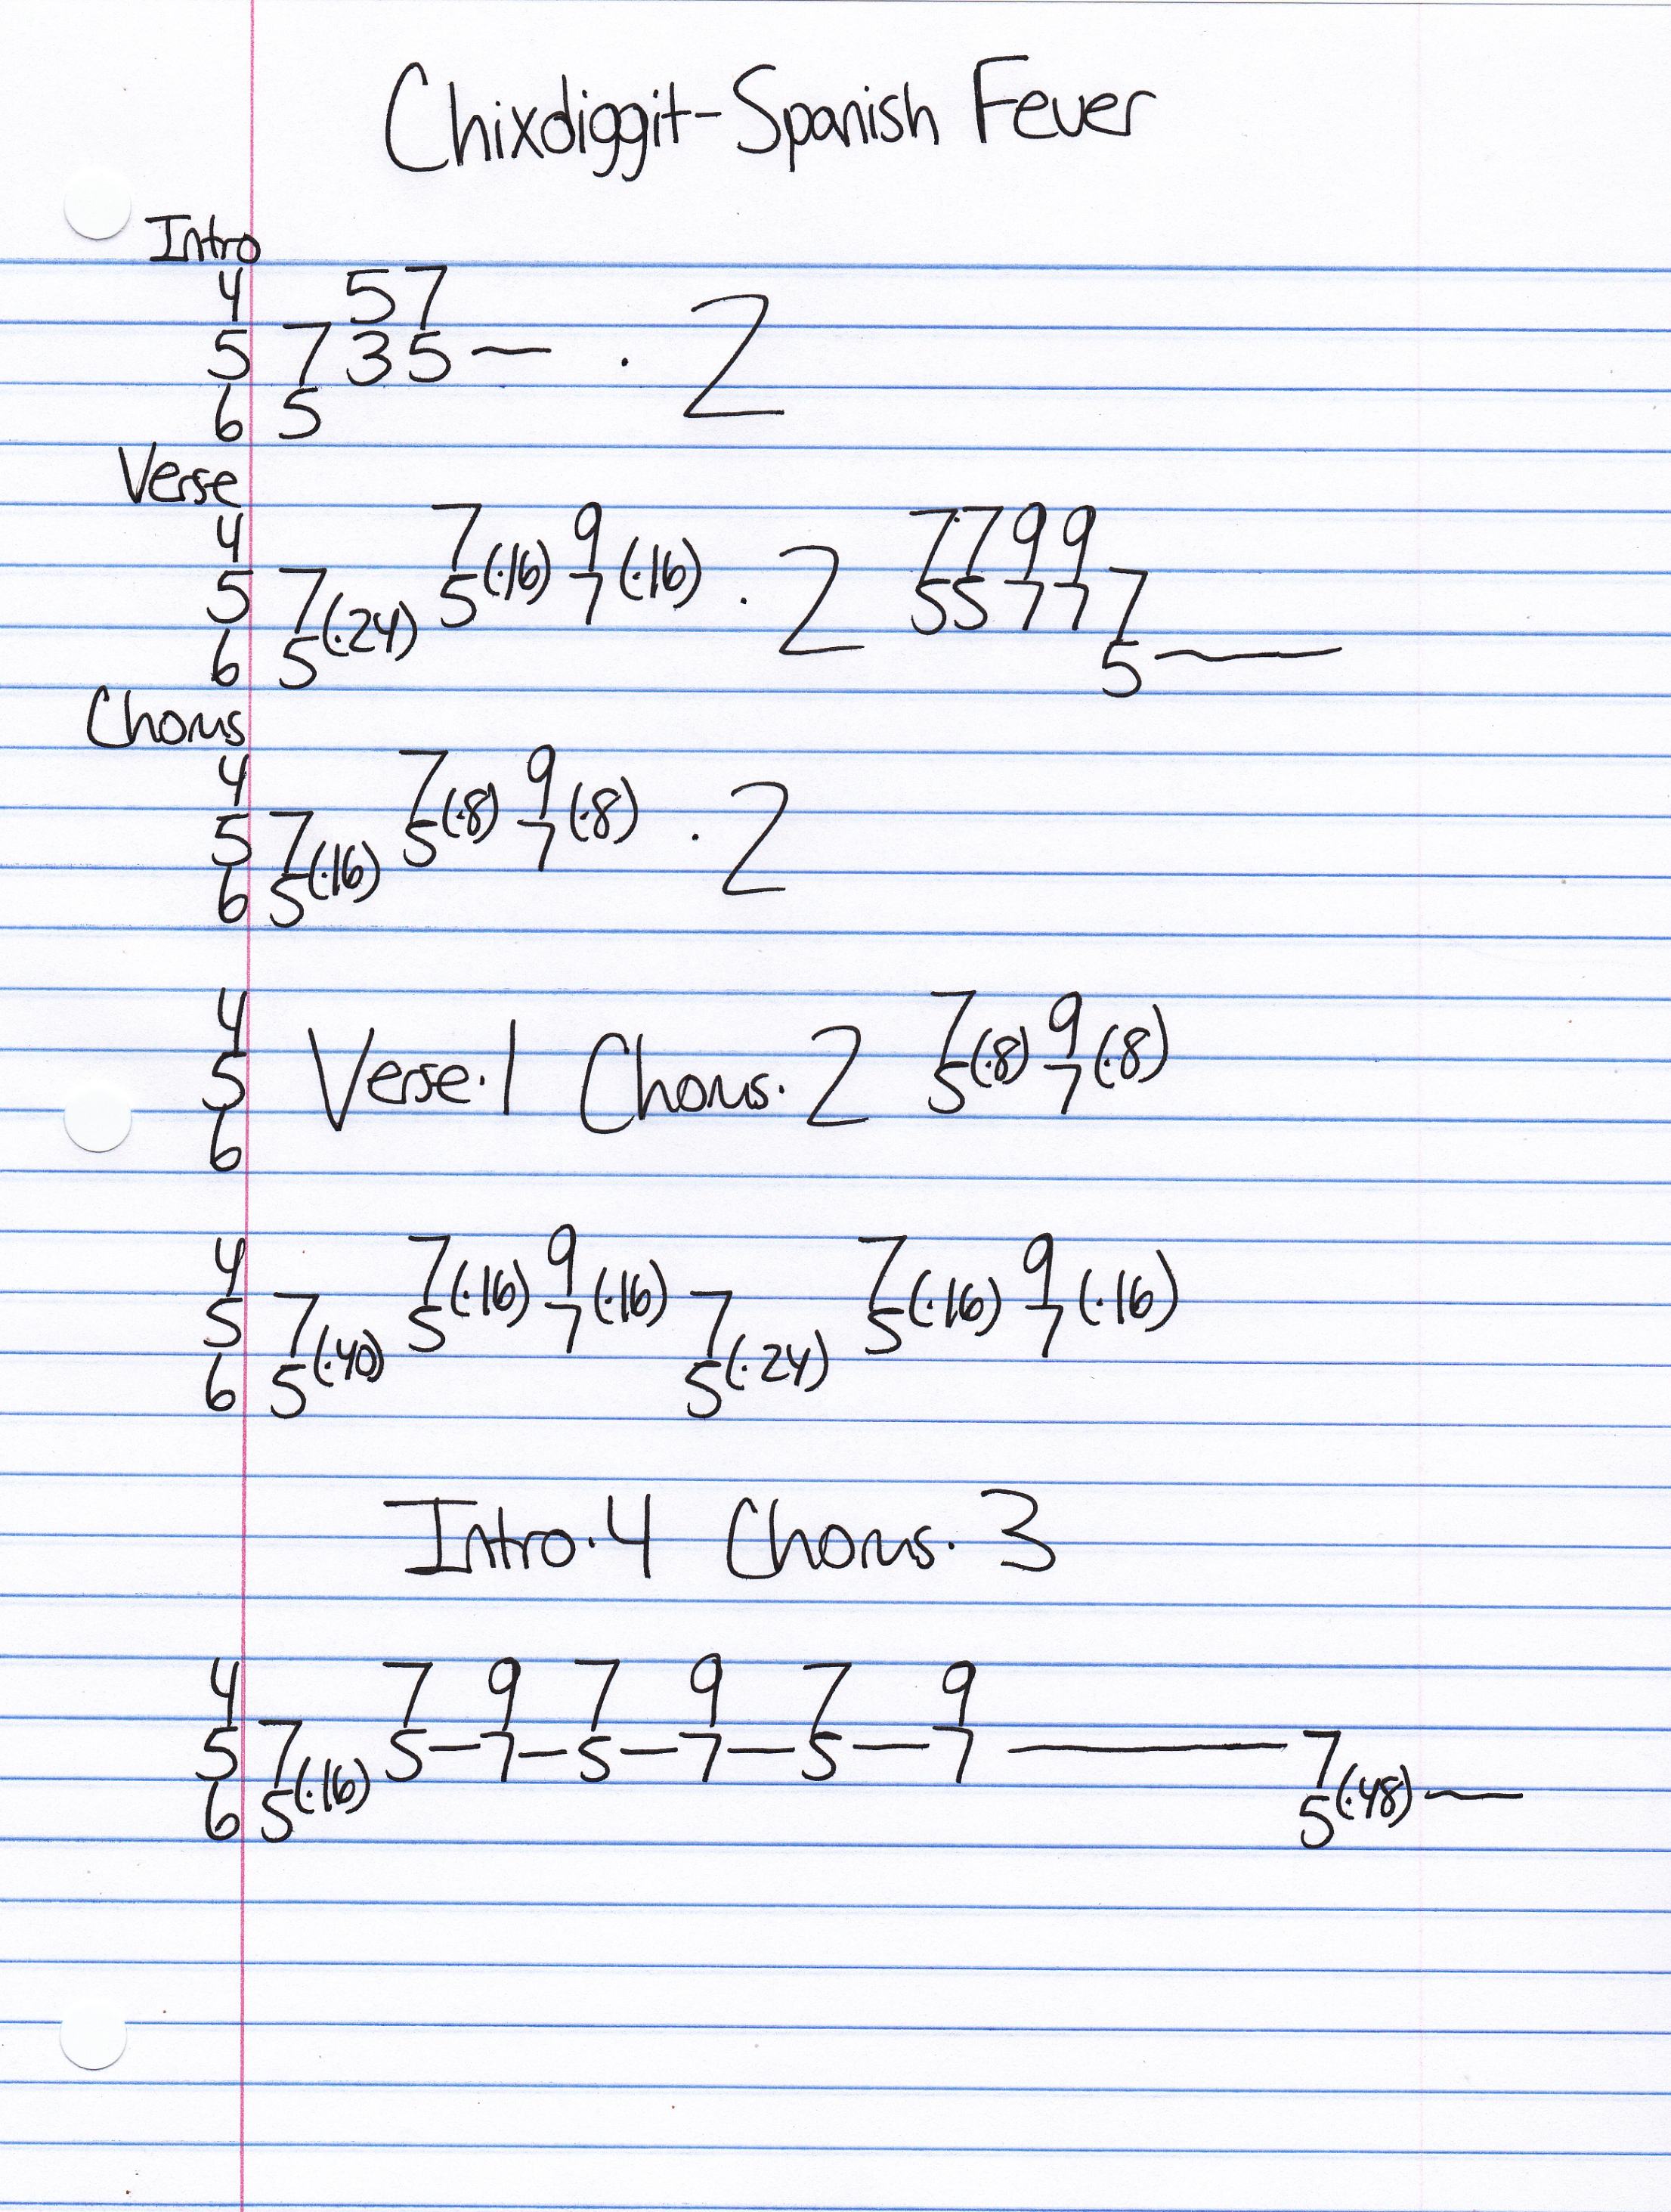 Chixdiggit-Spanish Fever
Intro
4 57
5 735— · 2
6 5
Verse
4 7 9 7799
5 7 5(·16) 7(·16) · 2 5577 7
6 5(·24) 5——
Chorus
4 7 9
5 7 5(·8) 7(·8) · 2
6 5(·16)
4 7 9
5 Verse·1 Chorus·2 5(·8) 7(·8)
6
4 7 9 7 9
5 7 5(·16) 7(·16) 7 5(·16) 7(·16)
6 5(·40) 5(·24)
Intro·4 Chorus·3
4 7 9 7 9 7 9
5 7 5—7—5—7—5—7——— 7
6 5(·16) 5(·48)—